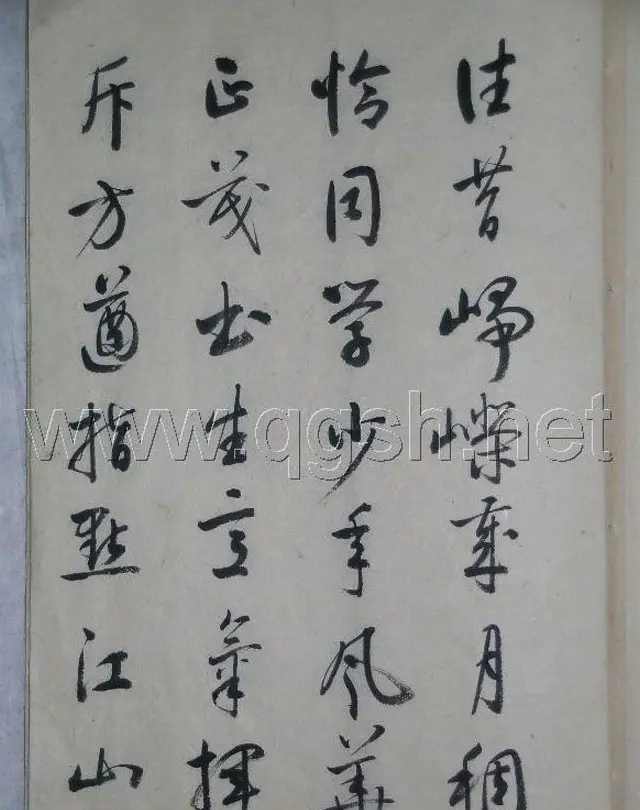 往昔峥嵘岁月稠
恰同学少年风華
正茂书生意氣揮
斥方遒指點江山
www.qgsh.net